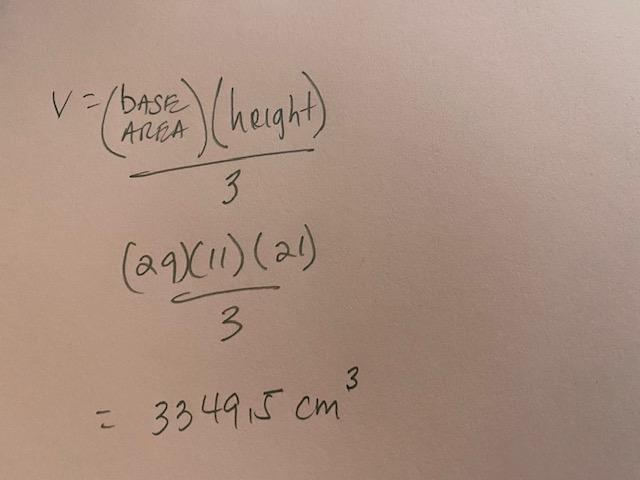 V = (bASE AREA)(height)
3
(29)(11)(21)
3
= 3349,5 cm³